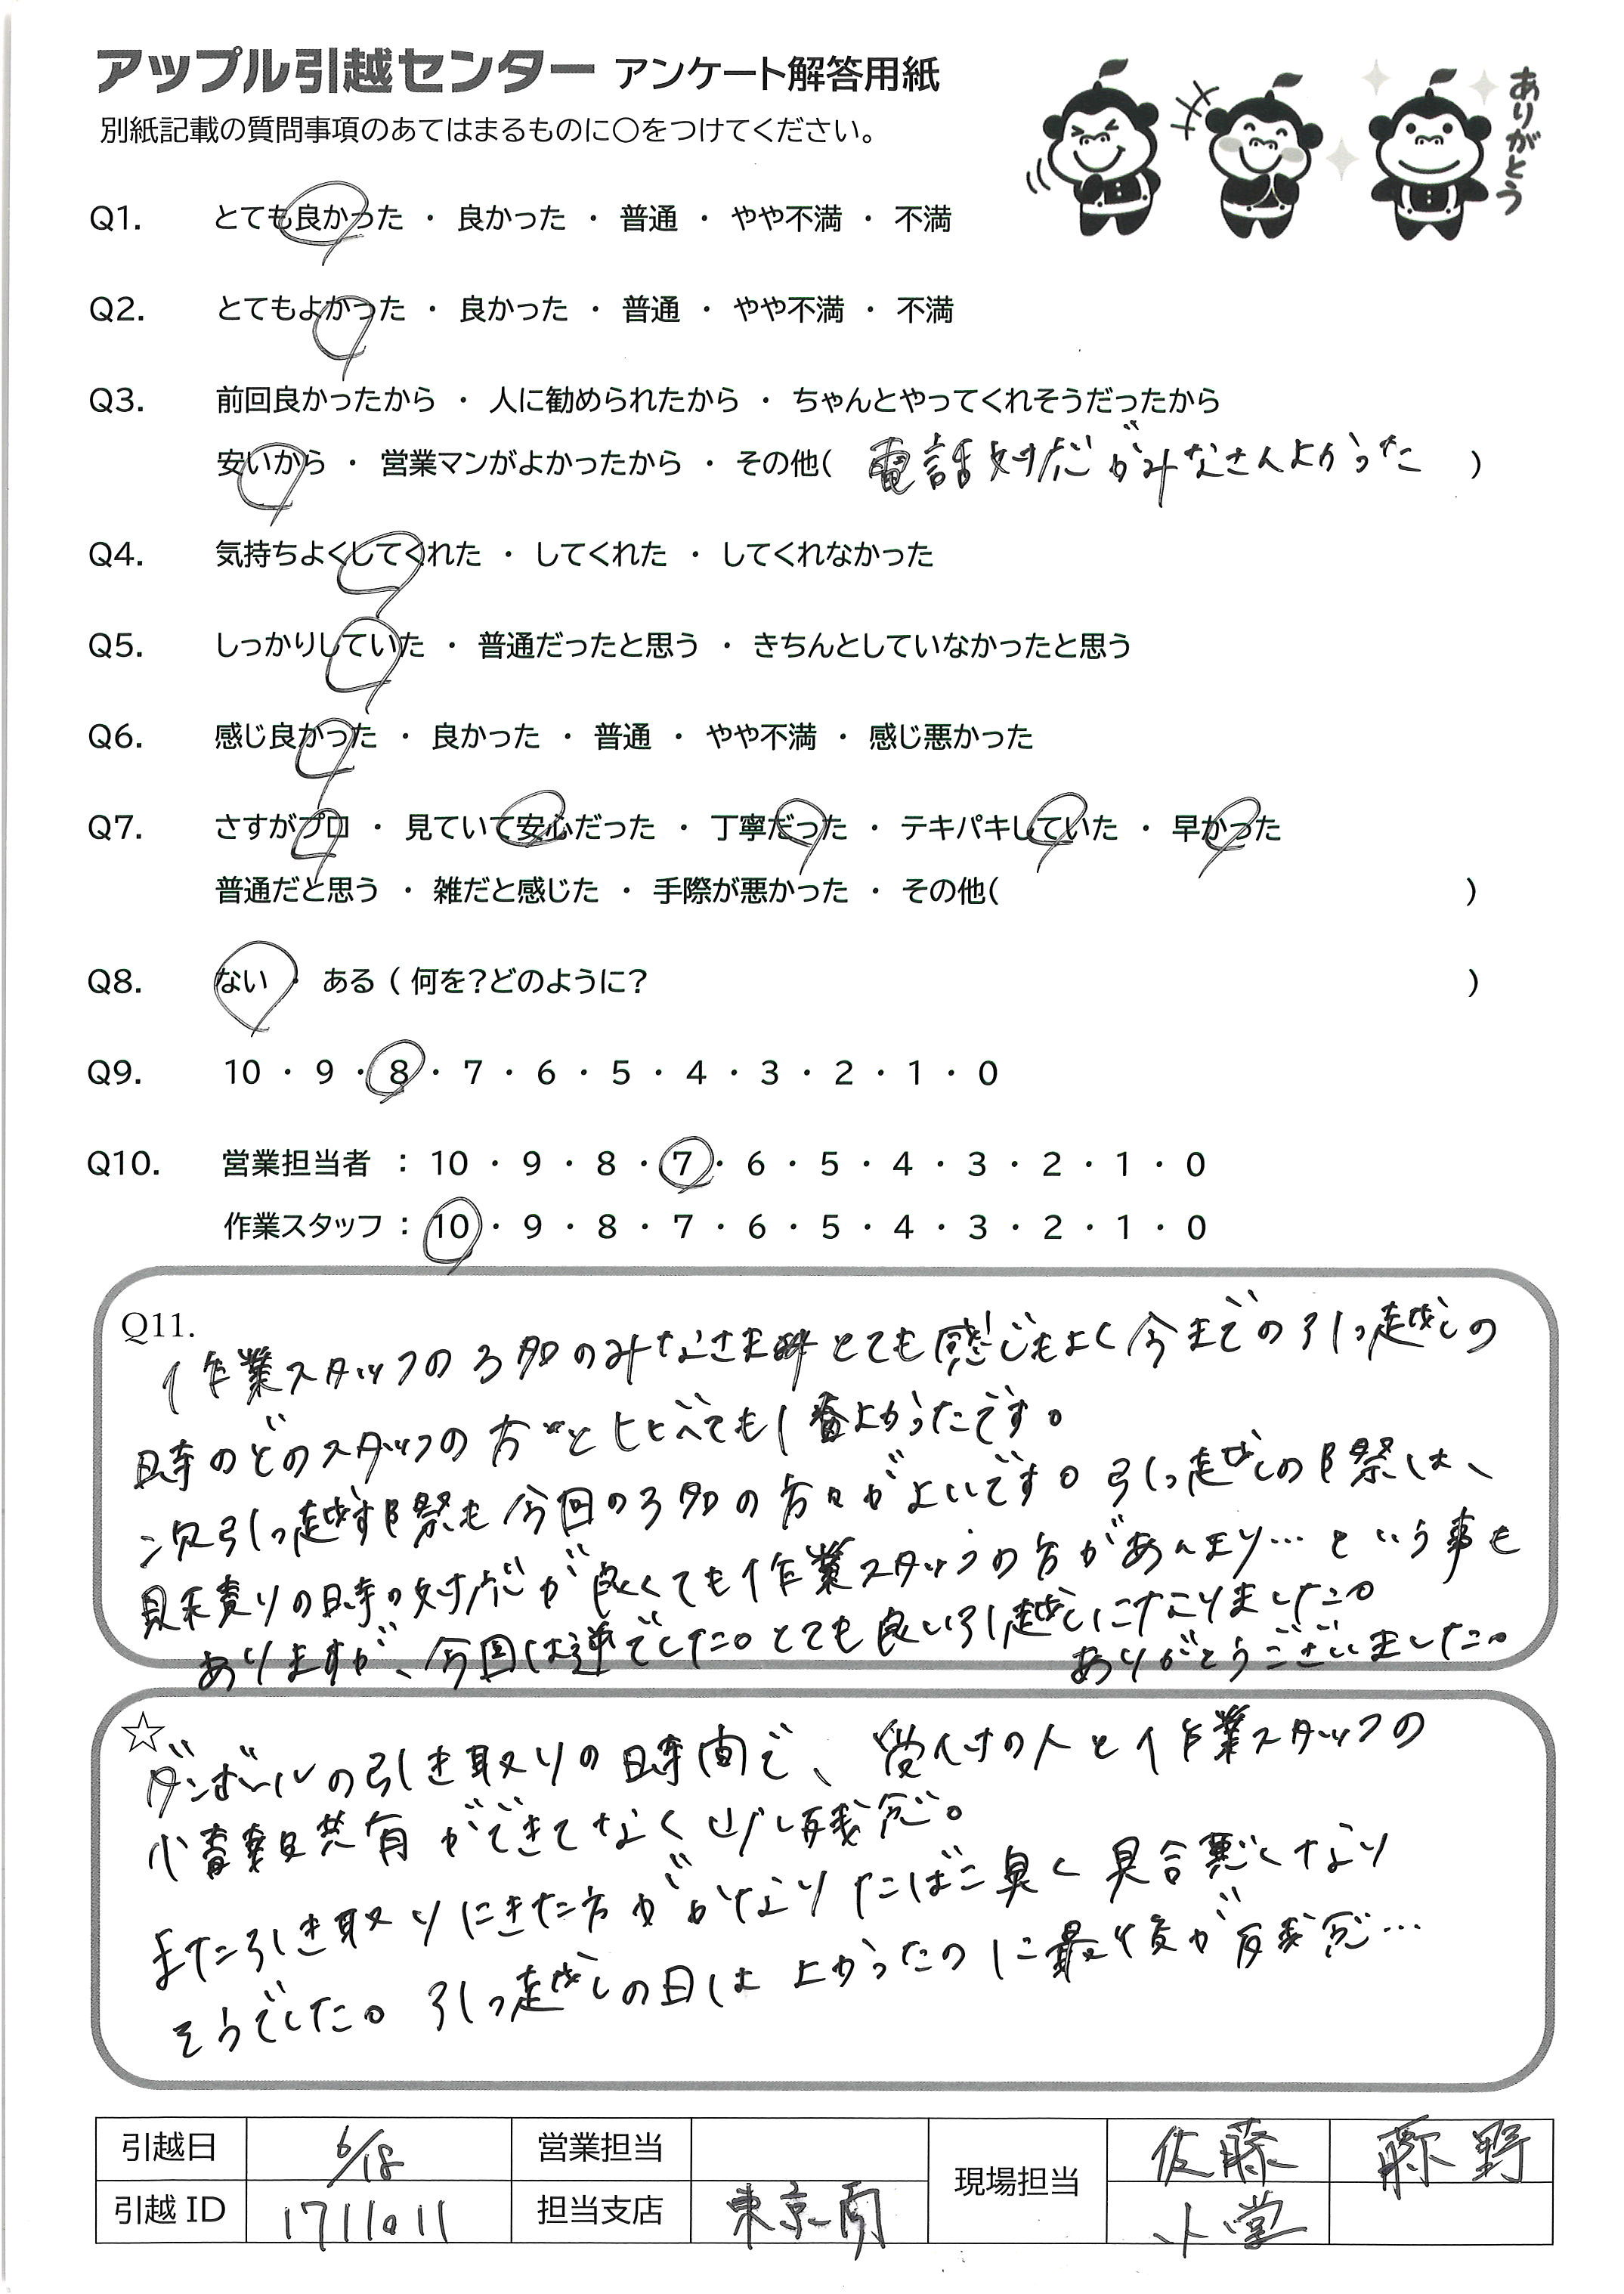 アップル引越センター アンケート解答用紙
ありがとう
別紙記載の質問事項のあてはまるものに〇をつけてください。
Q1. とても良かった ・ 良かった ・ 普通 ・ やや不満 ・ 不満
Q2. とてもよかった ・ 良かった ・ 普通 ・ やや不満 ・ 不満
Q3. 前回良かったから ・ 人に勧められたから ・ ちゃんとやってくれそうだったから
安いから ・ 営業マンがよかったから ・ その他( 電話対応がみなさんよかった )
Q4. 気持ちよくしてくれた ・ してくれた ・ してくれなかった
Q5. しっかりしていた ・ 普通だったと思う ・ きちんとしていなかったと思う
Q6. 感じ良かった ・ 良かった ・ 普通 ・ やや不満 ・ 感じ悪かった
Q7. さすがプロ ・ 見ていて安心だった ・ 丁寧だった ・ テキパキしていた ・ 早かった
普通だと思う ・ 雑だと感じた ・ 手際が悪かった ・ その他( )
Q8. ない ・ ある ( 何を?どのように? )
Q9. 10 ・ 9 ・ 8 ・ 7 ・ 6 ・ 5 ・ 4 ・ 3 ・ 2 ・ 1 ・ 0
Q10. 営業担当者 : 10 ・ 9 ・ 8 ・ 7 ・ 6 ・ 5 ・ 4 ・ 3 ・ 2 ・ 1 ・ 0
作業スタッフ : 10 ・ 9 ・ 8 ・ 7 ・ 6 ・ 5 ・ 4 ・ 3 ・ 2 ・ 1 ・ 0
Q11.
作業スタッフの3名のみなさまとても感じもよく今までの引っ越しの
時のどのスタッフの方とくらべても1番よかったです。
次引っ越す際も今回の3名の方々がよいです。引っ越しの際は、
見積りの時の対応が良くても作業スタッフの方があんまり…という事も
ありますが、今回は逆でした。とても良い引越しになりました。
ありがとうございました。
☆
ダンボールの引き取りの時間で、受付の人と作業スタッフの
情報共有ができてなく少し残念。
また引き取りにきた方がかなりたばこ臭く具合悪くなり
そうでした。引っ越しの日はよかったのに最後が残念…
引越日 6/18 営業担当 現場担当 佐藤 藤野
引越ID 1711011 担当支店 東京南 小堂